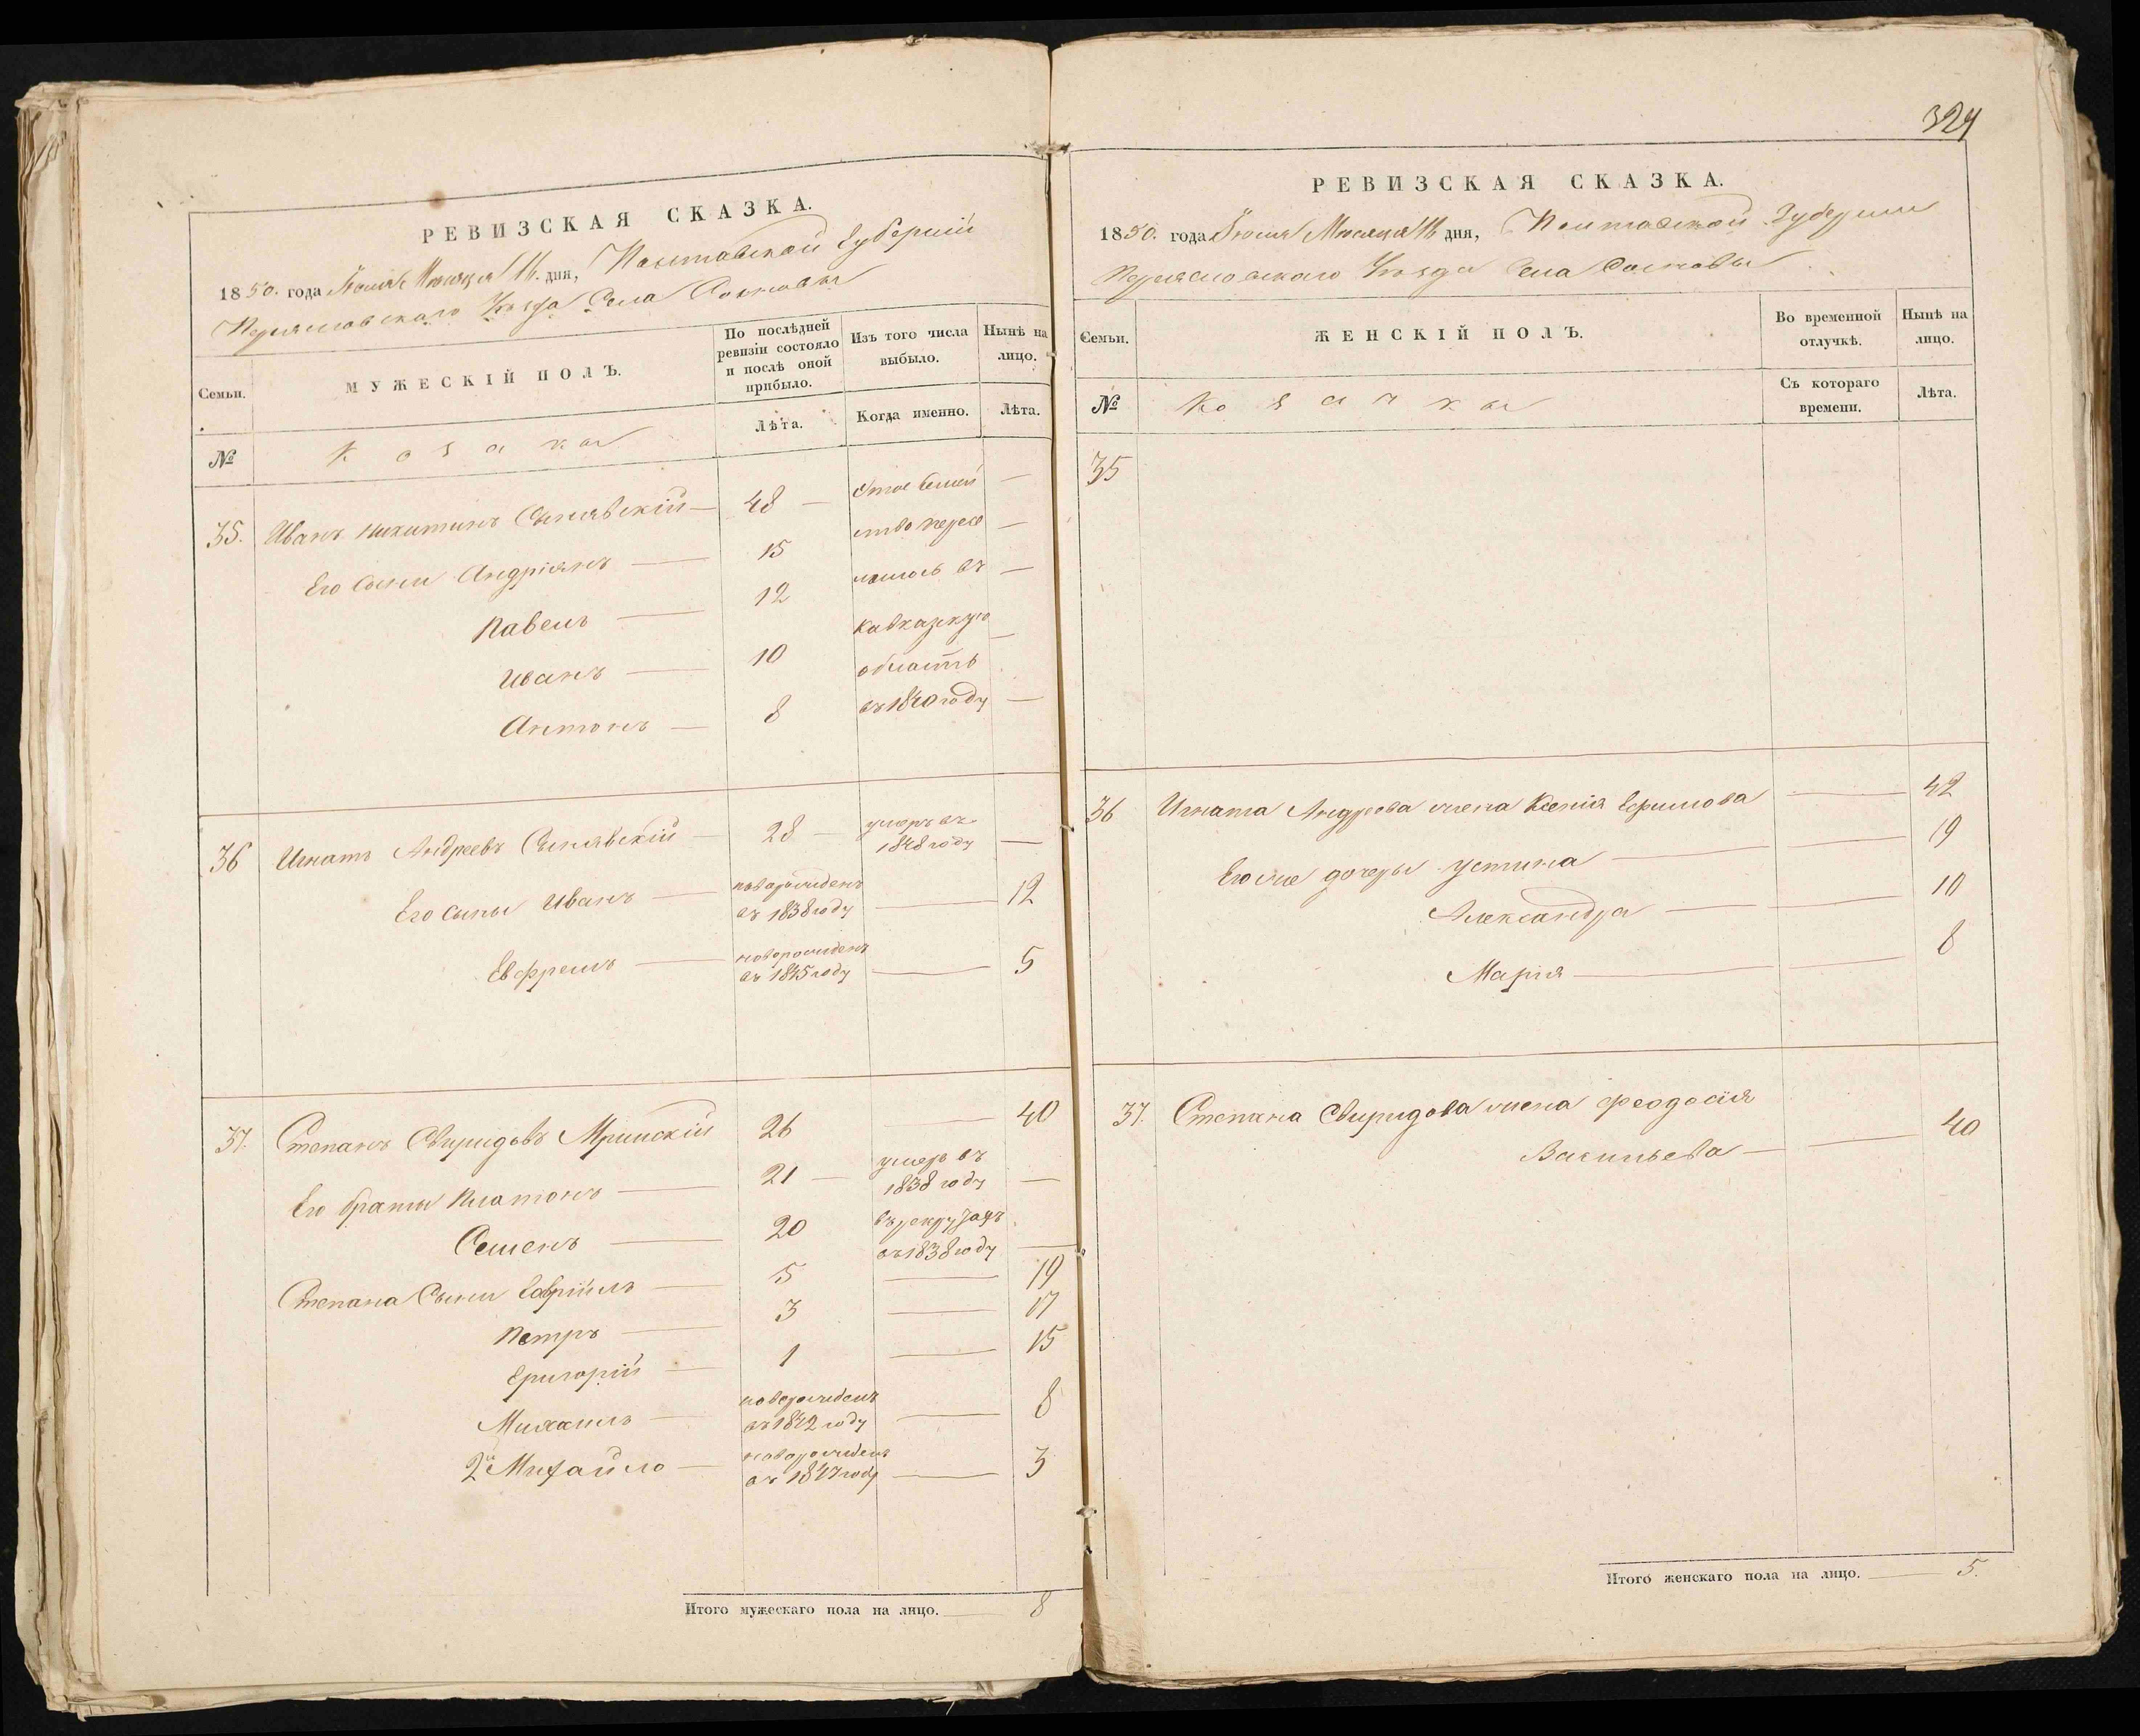 РЕВИЗСКАЯ СКАЗКА.
1850. года Іюня Мѣсяца 16. дня, Полтавской Губерніи
Переяславскаго Уѣзда Села Сосновы
Семьи.
МУЖЕСКІЙ ПОЛЪ.
По послѣдней ревизіи состояло и послѣ оной прибыло.
Изъ того числа выбыло.
Нынѣ на лицо.
№
Козаки
Лѣта.
Когда именно.
Лѣта.
35. Иванъ Никитинъ Сынявскій — 48 — Этое Семей —
Его Сыни Андріянъ — 15 ство пересе —
Павелъ — 12 лилось въ —
Иванъ — 10 Кавказскую —
область
Антонъ — 8 въ 1840 году —
36 Игнатъ Андреевъ Сынявскій — 28 — умеръ въ 1848 году —
Его сыны Иванъ — новорожденъ въ 1838 году — 12
Евфремъ — новорожденъ въ 1845 году — 5
37. Степанъ Свиридовъ Мринскій 26 — 40
Его браты Платонъ — 21 — умеръ въ 1838 году —
Семенъ — 20 въ 1838 году —
Степана Сыни Гавріилъ — 5 — 19
Петръ — 3 — 17
Григорій — 1 — 15
Михаилъ — новорожденъ въ 1842 году — 8
2й Михайло — новорожденъ въ 1847 году — 3
Итого мужескаго пола на лицо. — 8
324
РЕВИЗСКАЯ СКАЗКА.
1850. года Іюня Мѣсяца 16 дня, Полтавской Губерніи
Переяславскаго Уѣзда Села Сосновы
Семьи.
ЖЕНСКІЙ ПОЛЪ.
Во временной отлучкѣ.
Нынѣ на лицо.
№
Козачки
Съ котораго времени.
Лѣта.
35
36 Игната Андреева жена Ксенія Ефимова — 42
Его же дочеры Устина — 19
Александра — 10
Марія — 8
37. Степана Свиридова жена Феодосія
Васильева — 40
Итого женскаго пола на лицо. — 5.